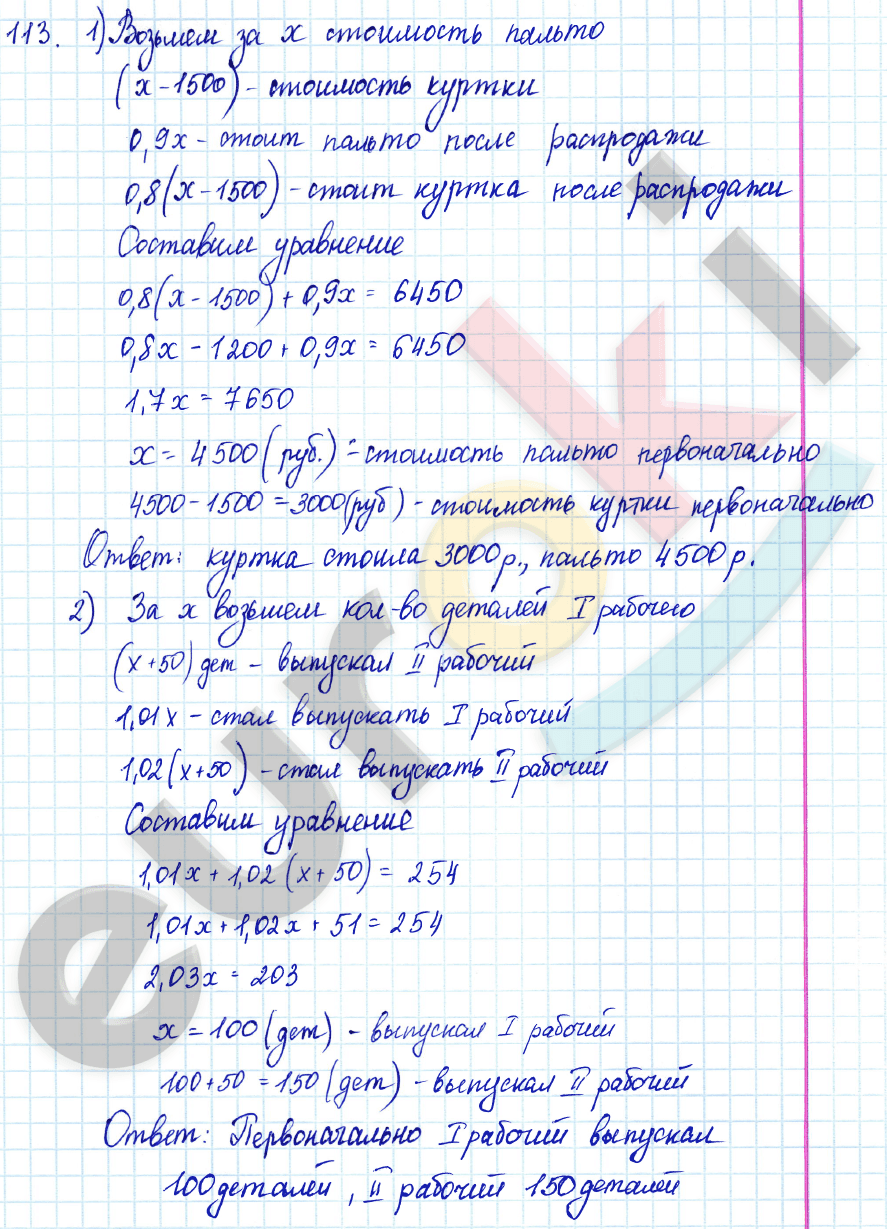 113. 1) Возьмем за x стоимость пальто
(x-1500) - стоимость куртки
0,9x - стоит пальто после распродажи
0,8(x-1500) - стоит куртка после распродажи
Составим уравнение
0,8(x-1500)+0,9x = 6450
0,8x - 1200 + 0,9x = 6450
1,7x = 7650
x = 4500 (руб.) - стоимость пальто первоначально
4500-1500 = 3000 (руб) - стоимость куртки первоначально
Ответ: куртка стоила 3000 р., пальто 4500 р.
2) За x возьмем кол-во деталей I рабочего
(x+50) дет - выпускал II рабочий
1,01x - стал выпускать I рабочий
1,02(x+50) - стал выпускать II рабочий
Составим уравнение
1,01x + 1,02(x+50) = 254
1,01x + 1,02x + 51 = 254
2,03x = 203
x = 100 (дет) - выпускал I рабочий
100+50 = 150 (дет) - выпускал II рабочий
Ответ: Первоначально I рабочий выпускал
100 деталей, II рабочий 150 деталей
euroki